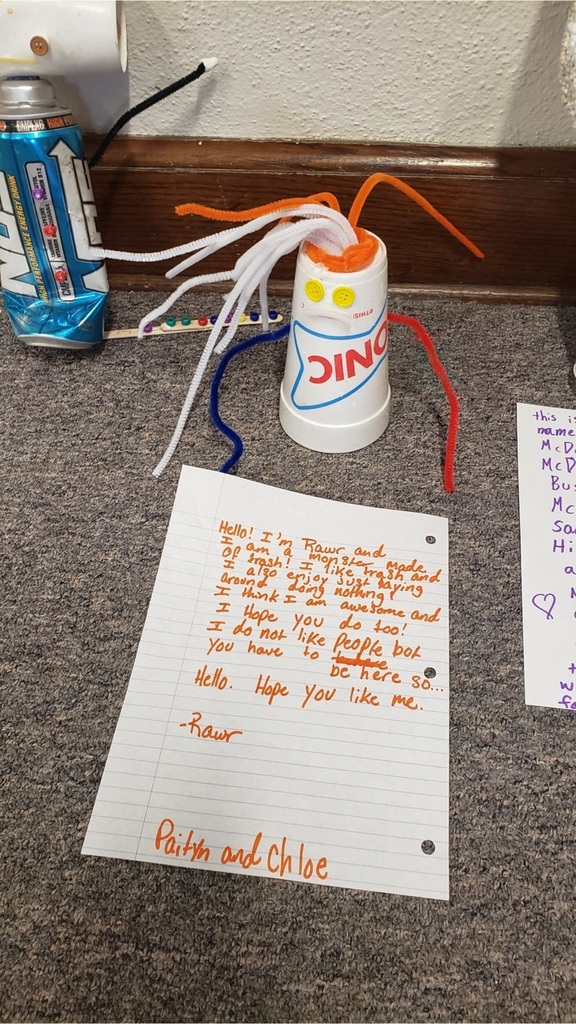 CMPLXG HIGH
HIGH PERFORMANCE ENERGY DRINK
SONIC
Hello! I'm Rawr and
I am a monster made
of trash! I like trash and
I also enjoy just laying
around doing nothing!
I think I am awesome and
I Hope you do too!
I do not like People bot
you have to
be here so...
Hello. Hope you like me.
-Rawr
Paityn and Chloe
this is
name
McD
McD
Bu
Mc
Sa
Hi
a